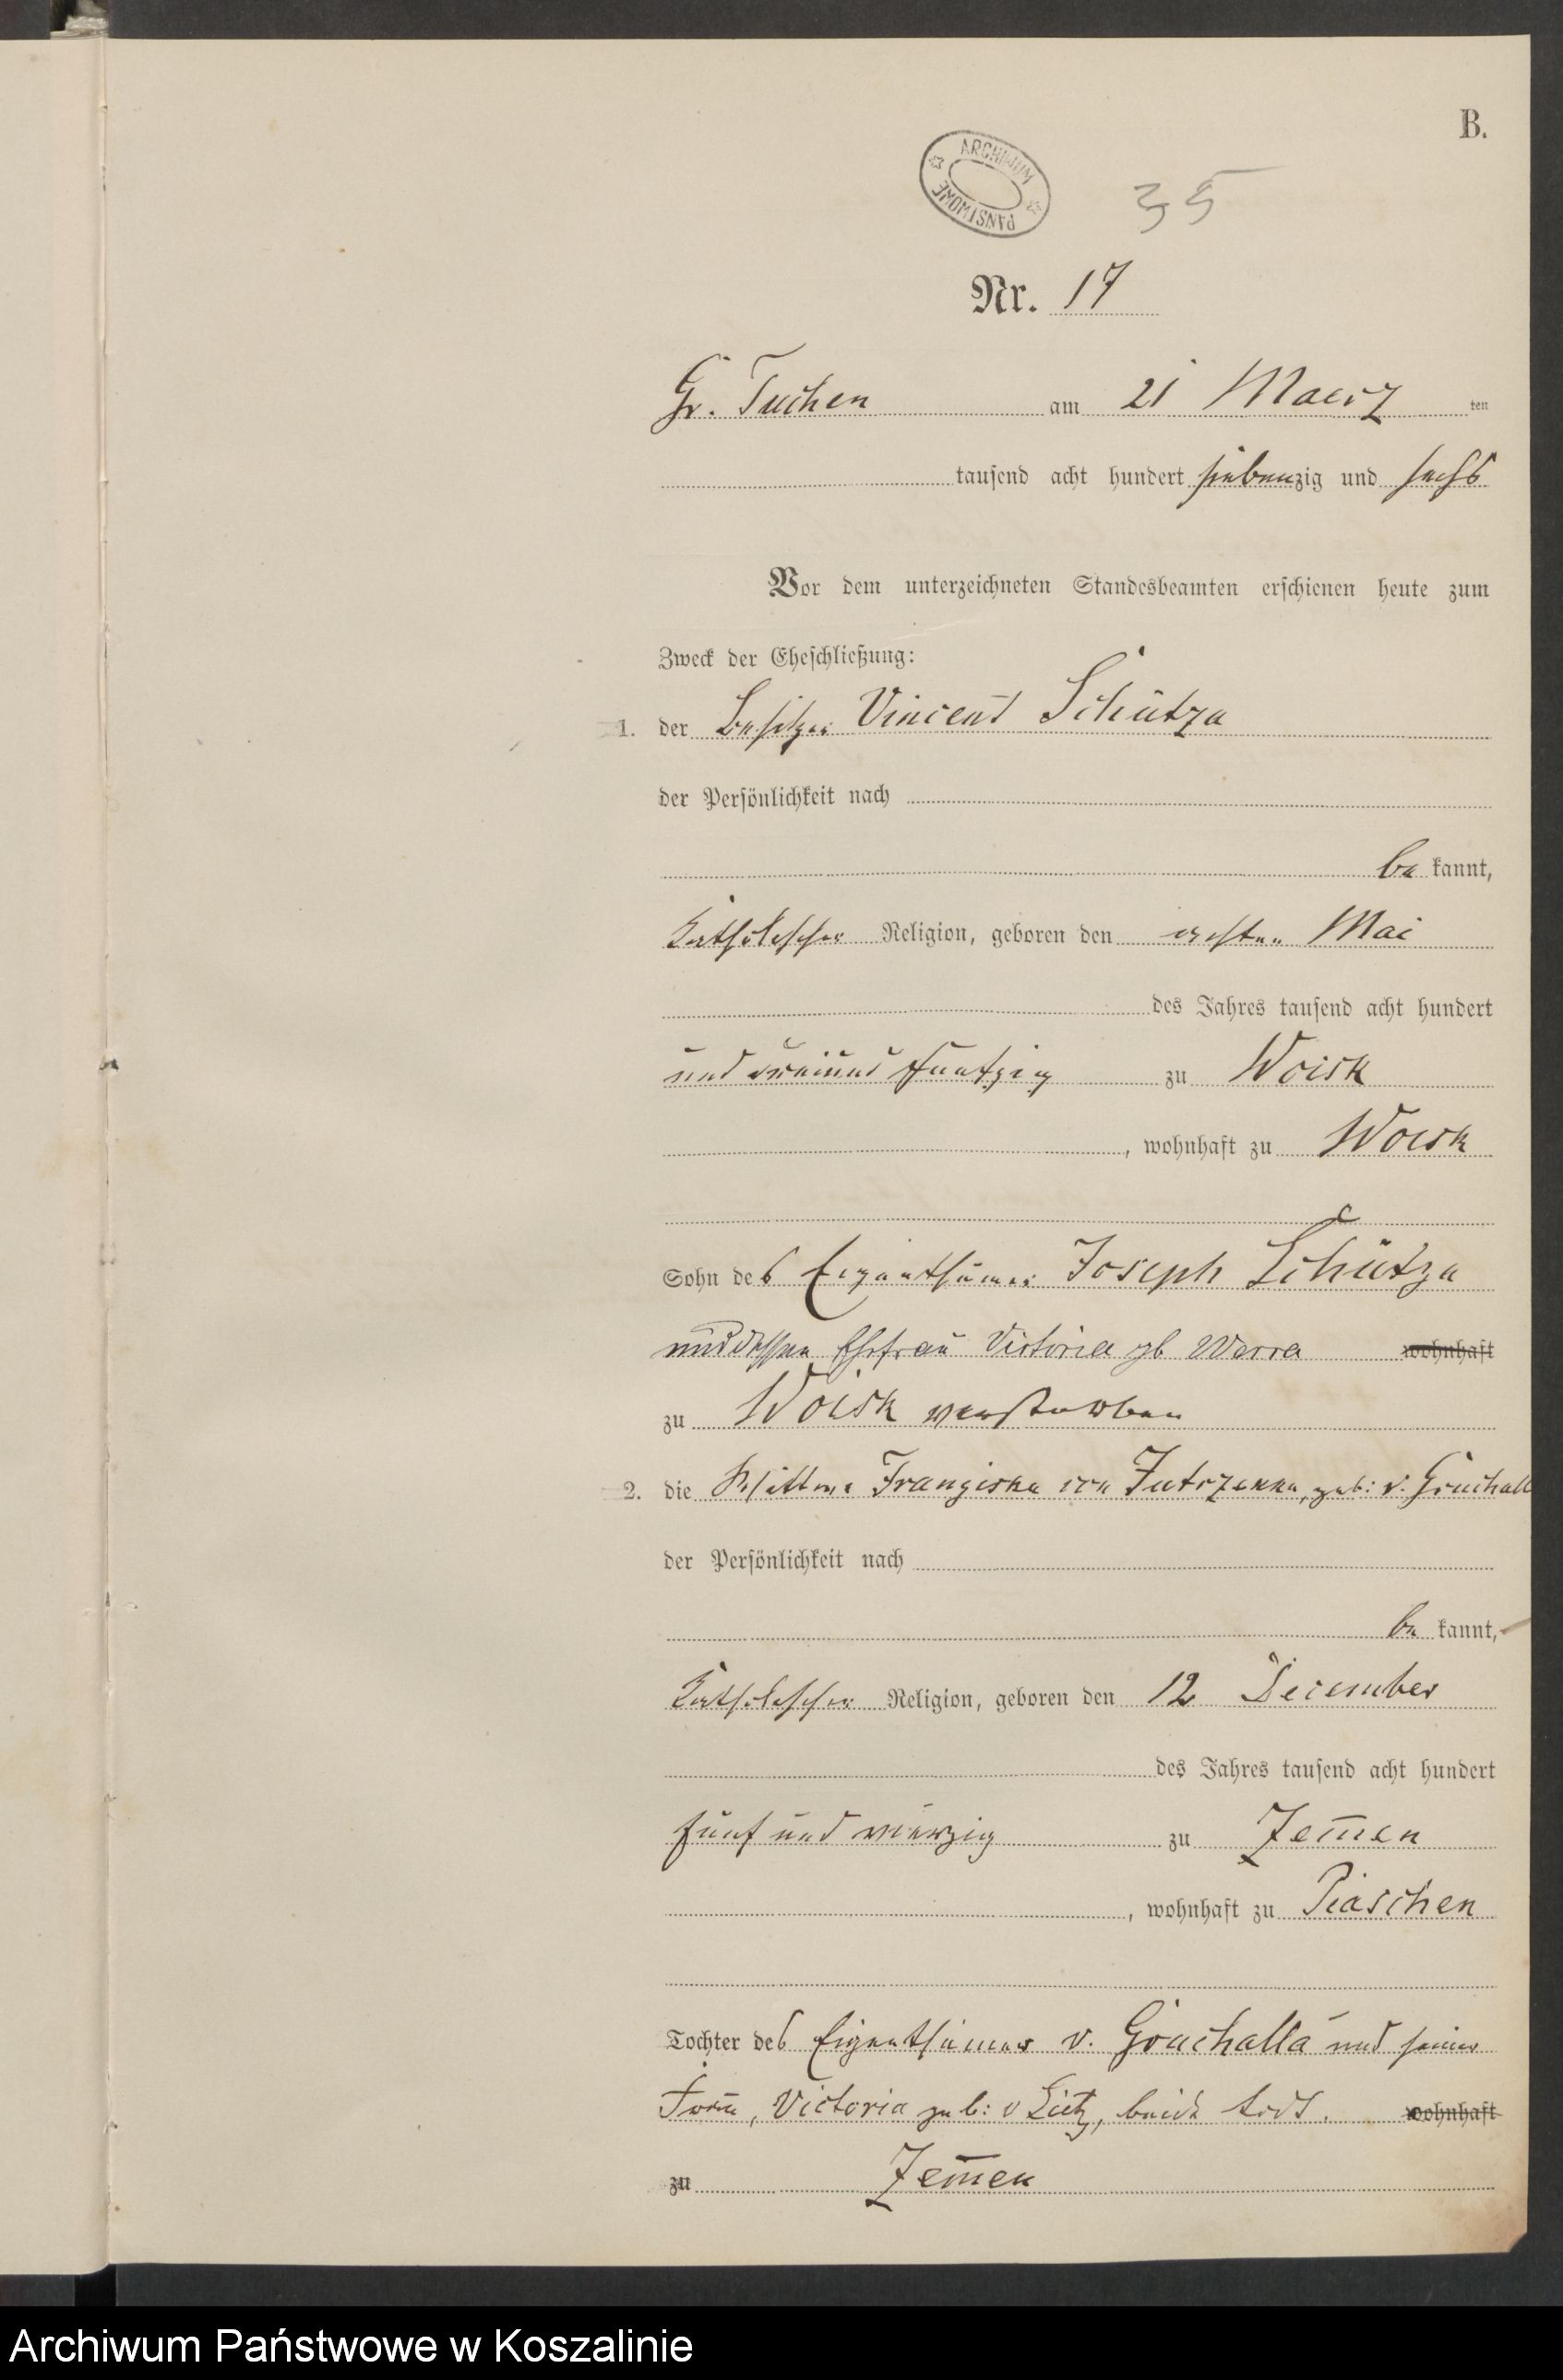 B.
ARCHIWUM PAŃSTWOWE
35
Nr. 17
Gr. Tuchen am 21 Maerz ten
tausend acht hundert siebenzig und sechs
Vor dem unterzeichneten Standesbeamten erschienen heute zum
Zweck der Eheschließung:
1. der Besitzer Vincent Schütza
der Persönlichkeit nach
be kannt,
katholischer Religion, geboren den ersten Mai
des Jahres tausend acht hundert
und dreiund fünfzig zu Woisk
, wohnhaft zu Woisk
Sohn des Eigenthümer Joseph Schütza
und dessen Ehefrau Victoria gb Warra wohnhaft
zu Woisk verstorben
2. die Wittwe Franziska von Jutrzenka, geb: v. Gruchalla
der Persönlichkeit nach
be kannt,
katholischer Religion, geboren den 12 December
des Jahres tausend acht hundert
fünf und vierzig zu Zem̅en
, wohnhaft zu Piaschen
Tochter des Eigenthümer v. Gruchalla und seiner
Frau, Victoria geb: v Zietz, beide todt. wohnhaft
zu Zem̅en
Archiwum Państwowe w Koszalinie